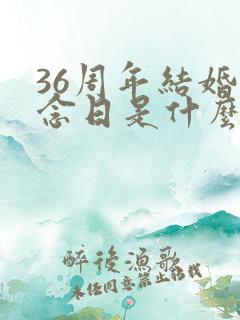 36周年結婚
念日是什麼
醉後漁歌
未任同意禁止轉載